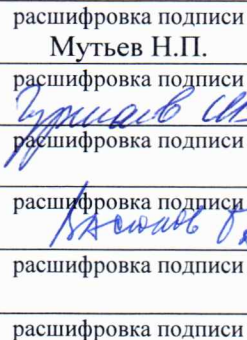 расшифровка подписи
Мутьев Н.П.
расшифровка подписи
расшифровка подписи
расшифровка подписи
расшифровка подписи
расшифровка подписи